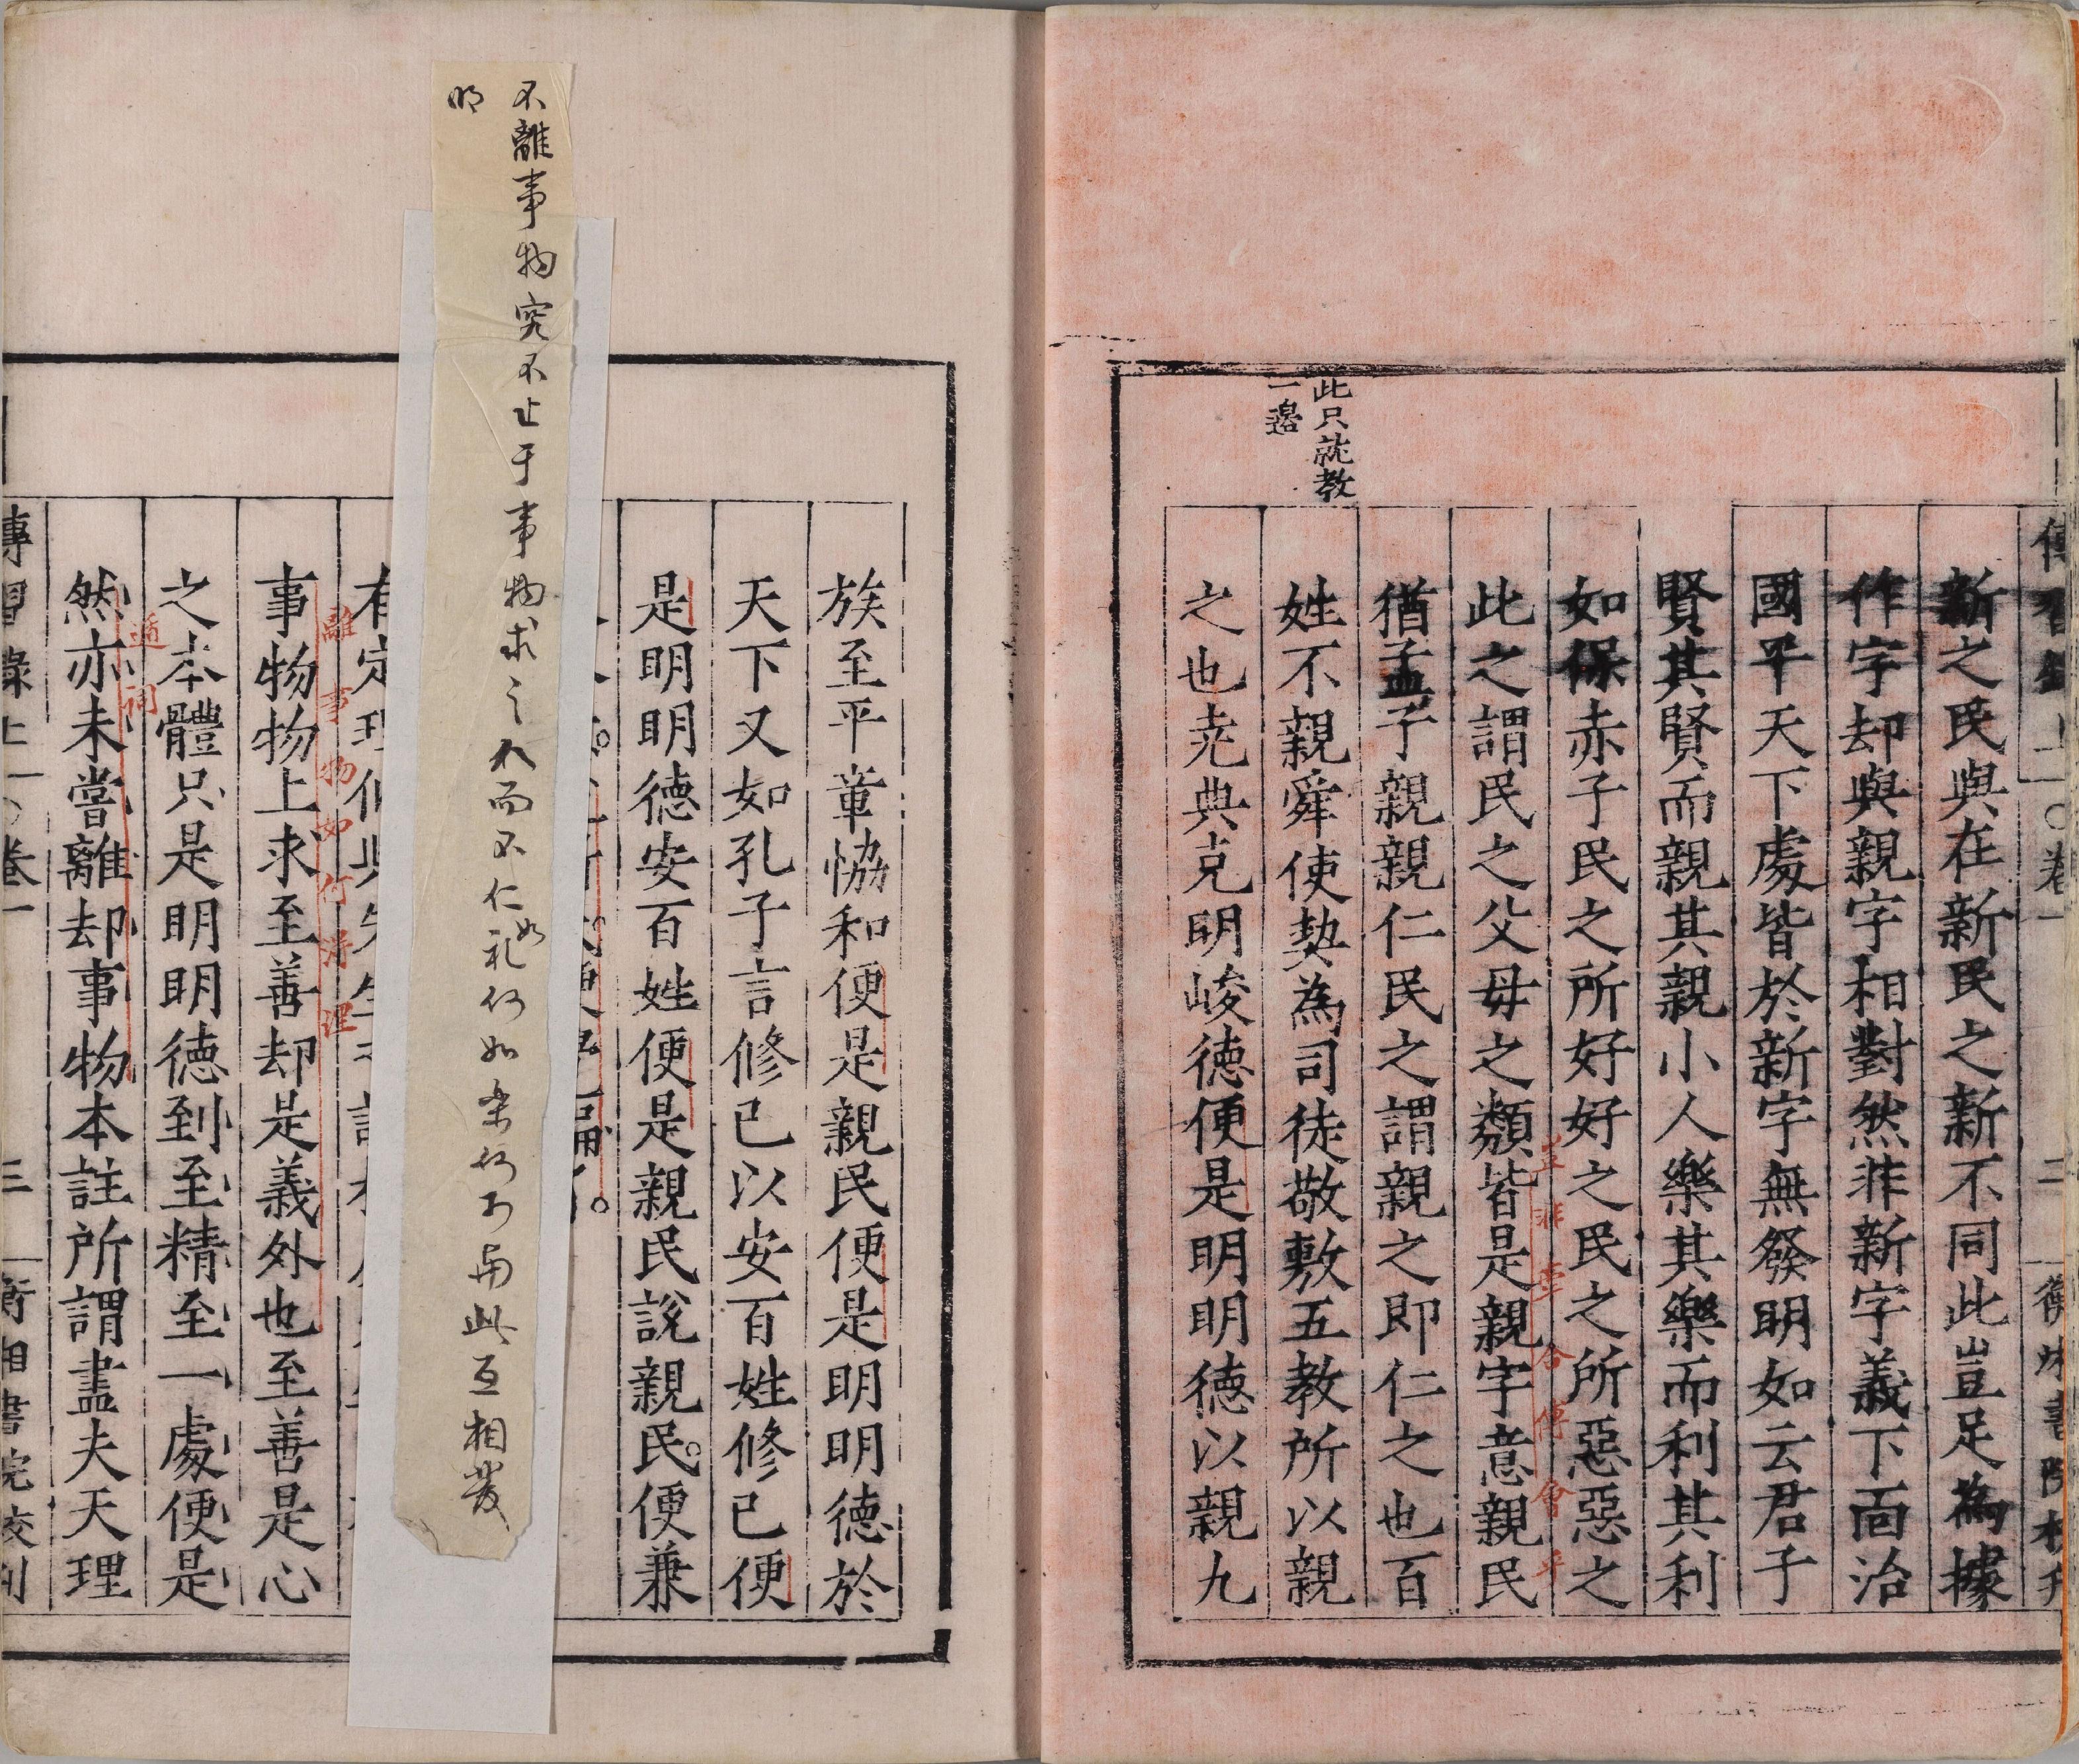 此只就教
一邊
新之民與在新民之新不同此豈足為據
作字却與親字相對然非新字義下面治
國平天下處皆於新字無發明如云君子
賢其賢而親其親小人樂其樂而利其利
如保赤子民之所好好之民之所惡惡之
此之謂民之父母之類皆是親字意親民
猶孟子親親仁民之謂親之即仁之也百
姓不親舜使契為司徒敬敷五教所以親
之也尭典克明峻徳便是明明徳以親九
族至平章恊和便是親民便是明明徳於
天下又如孔子言修己以安百姓修己便
是明明徳安百姓便是親民說親民便兼
不離事物究不止于事物求之人而不仁如礼何如樂何可與此互相發
明
離事物如何得理
事事物物上求至善却是義外也至善是心
之本體只是明明徳到至精至一處便是
遁詞
然亦未嘗離却事物本註所謂盡夫天理
傳習錄上 ○卷一 三 衡湘書院校刋